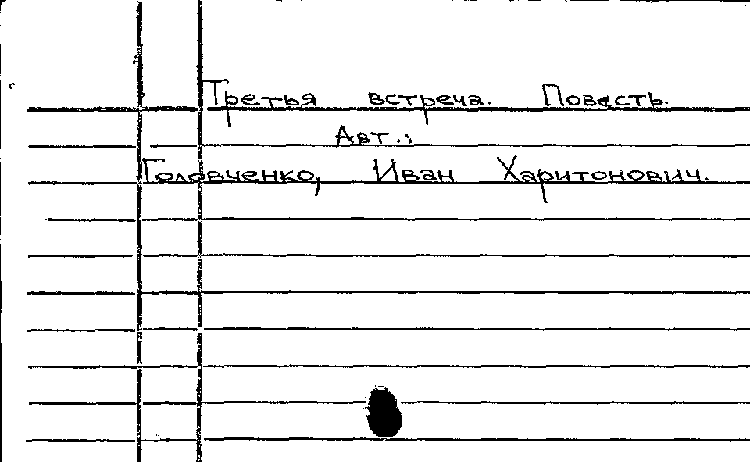 Третья встреча. Повесть.
Авт.:
Головченко, Иван Харитонович.